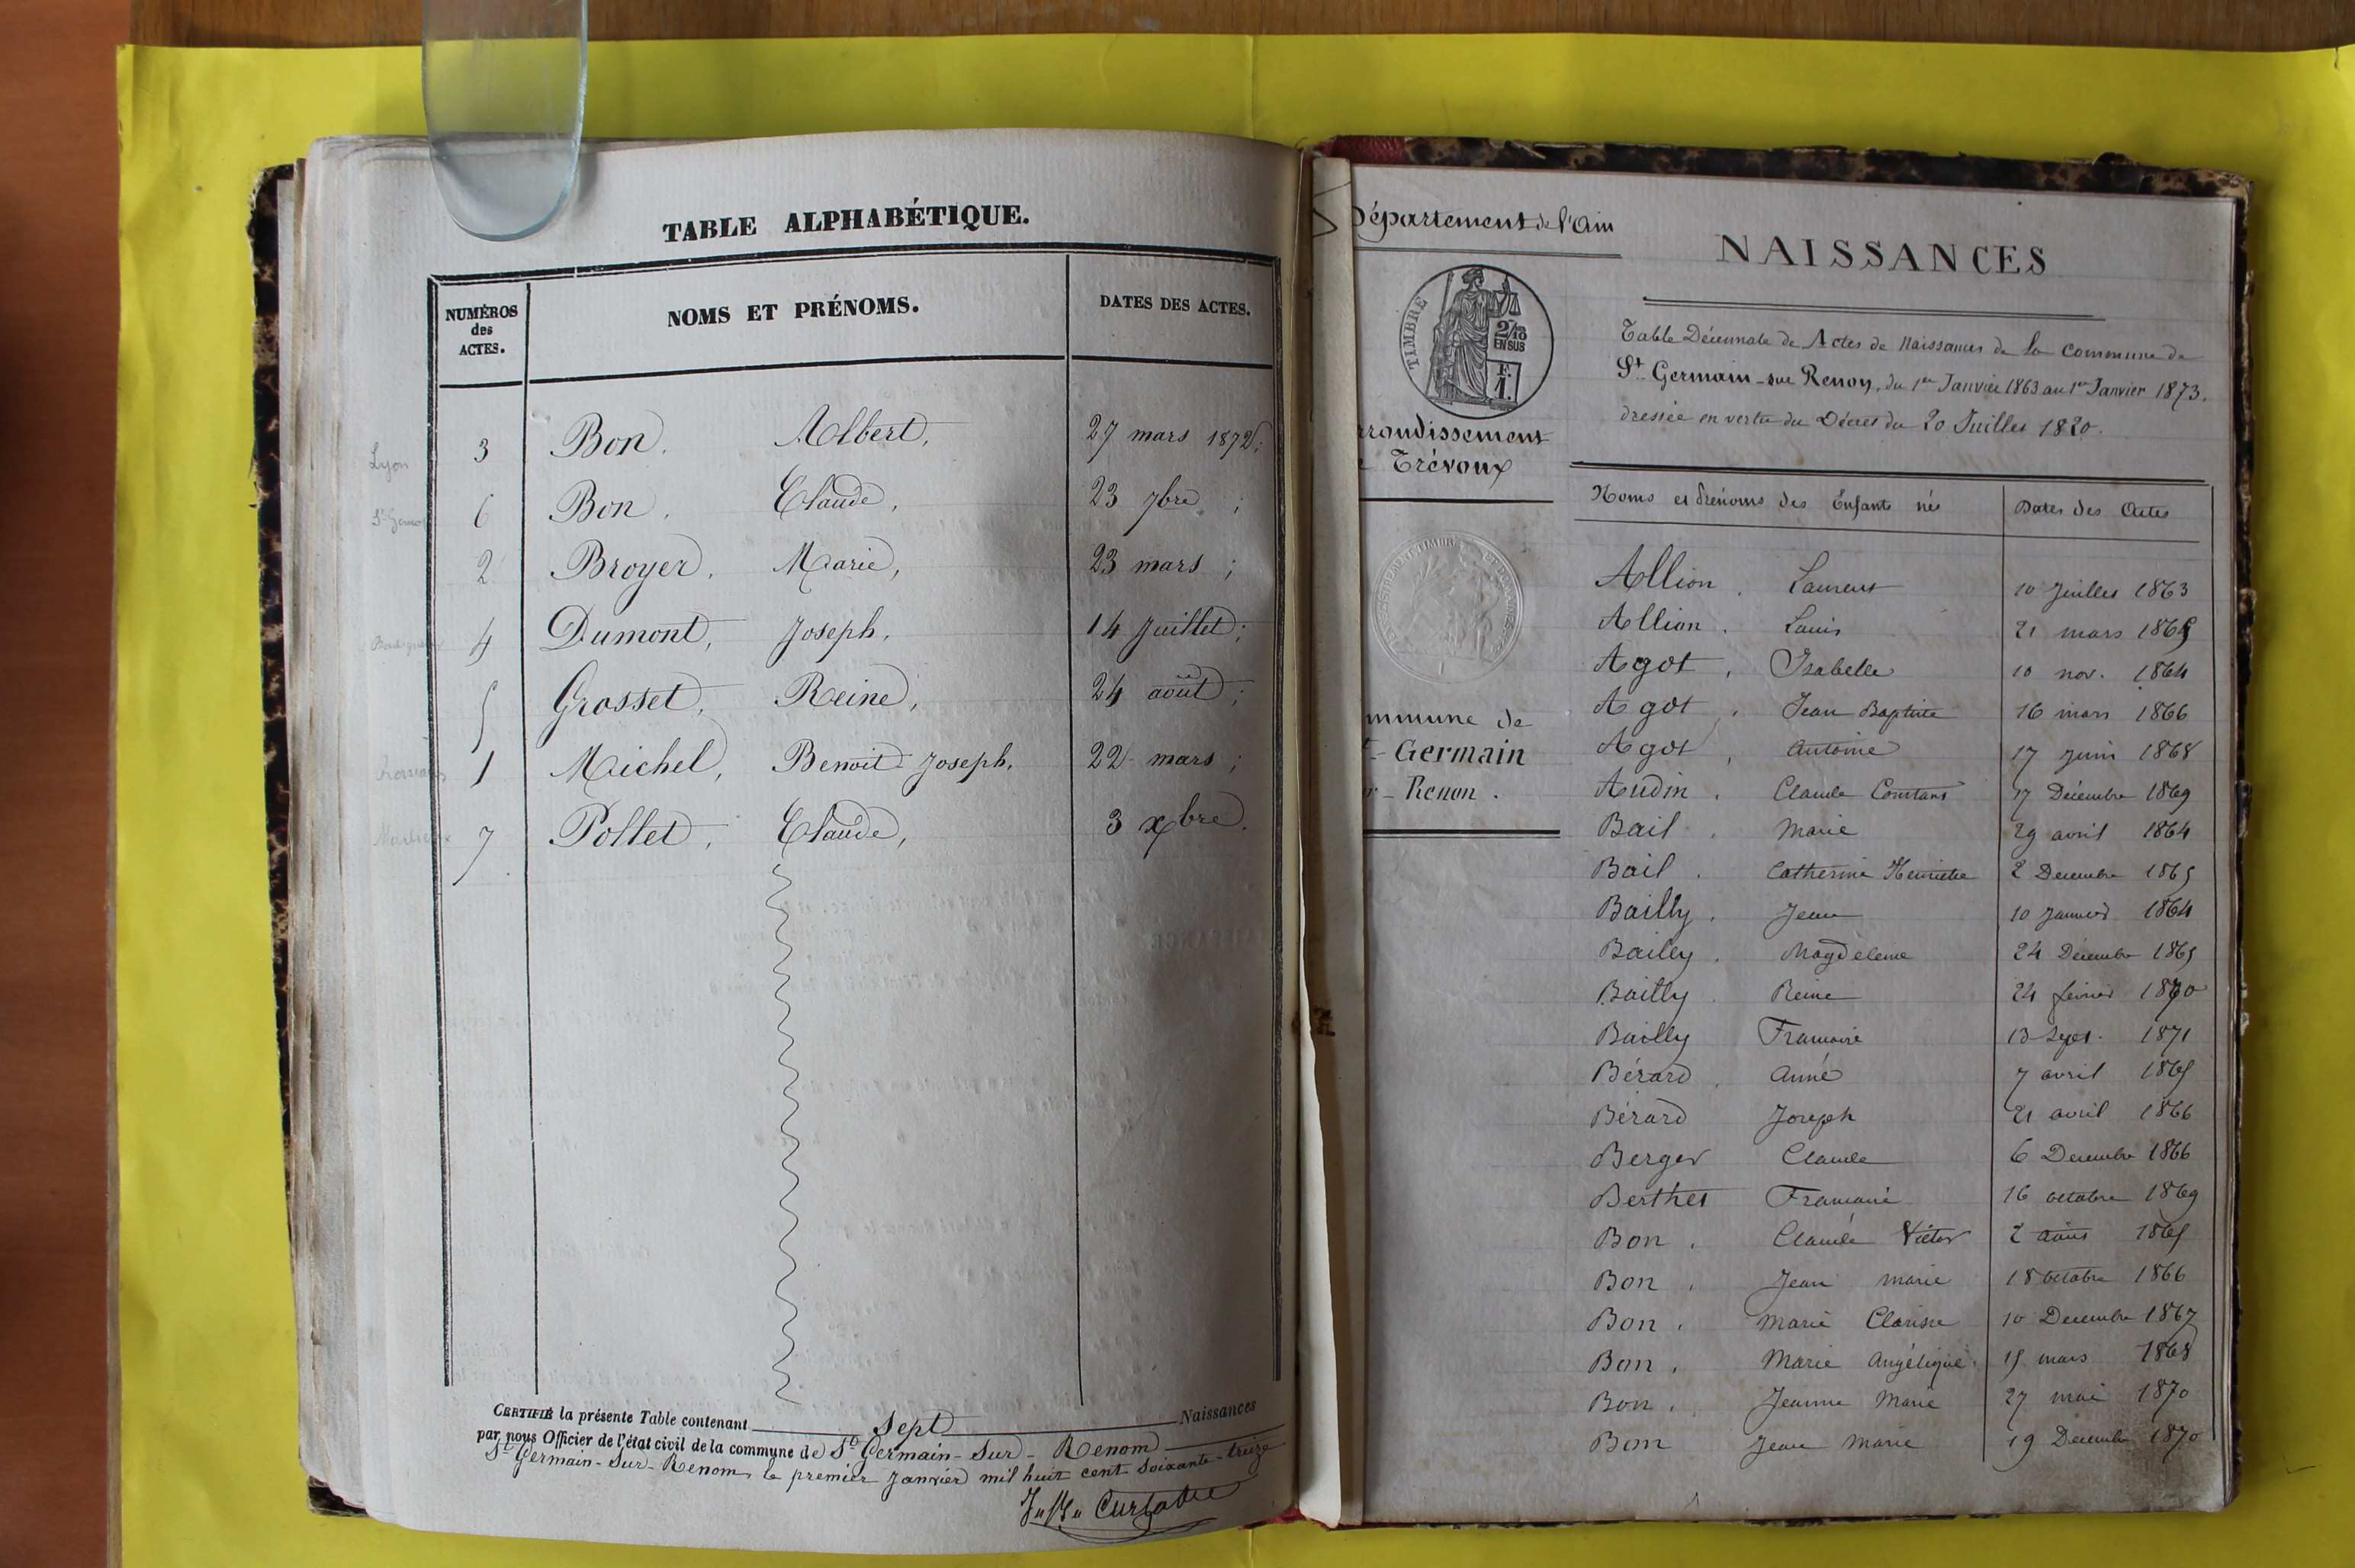 TABLE ALPHABÉTIQUE.
NUMÉROS des ACTES. NOMS ET PRÉNOMS. DATES DES ACTES.
Lyon 3 Bon, Albert, 27 mars 1872;
6 Bon, Claude, 23 7bre ;
2 Broyer, Marie, 23 mars ;
4 Dumont, Joseph, 14 Juillet ;
5 Grosset, Reine, 24 août ;
1 Michel, Benoit Joseph, 22 mars ;
7 Pollet, Claude, 3 xbre.
CERTIFIÉ la présente Table contenant Sept Naissances
par nous Officier de l'état civil de la commune de St Germain-Sur-Renom
St Germain-Sur-Renom, le premier Janvier mil huit cent soixante-treize
Département de l'Ain
TIMBRE
2/10
EN SUS
F.
1.
rrondissement
Trévoux
mmune de
t-Germain
r-Renon.
NAISSANCES
Table Décennale de Actes de Naissances de la commune de
St Germain-sur Renon, du 1er Janvier 1863 au 1er Janvier 1873.
dressée en vertu du Décret du 20 Juillet 1820.
Noms et Prénoms des Enfants nés Dates des Actes
Allion, Laurent 10 Juillet 1863
Allion, Louis 21 mars 1865
Agot, Isabelle 10 nov. 1864
Agot, Jean Baptiste 16 mars 1866
Agot, Antoine 17 Juin 1868
Audin, Claude Constant 17 Décembre 1869
Bail, Marie 29 avril 1864
Bail, Catherine Henriette 2 Décembre 1865
Bailly, Jean 10 Janvier 1864
Bailly, Magdeleine 24 Décembre 1865
Bailly, Reine 24 février 1870
Bailly Francoise 13 Sept. 1871
Bérard, Anne 7 avril 1865
Bérard Joseph 21 avril 1866
Berger Claude 6 Decembre 1866
Berthet 16 octobre 1869
Bon, Claude Victor 2 août 1865
Bon, Jean Marie 18 octobre 1866
Bon, Marie Clarisse 10 Decembre 1867
Bon, Marie Angélique 15 mars 1868
Bon, Jeanne Marie 27 mai 1870
Bon Jean Marie 19 Décembre 1870